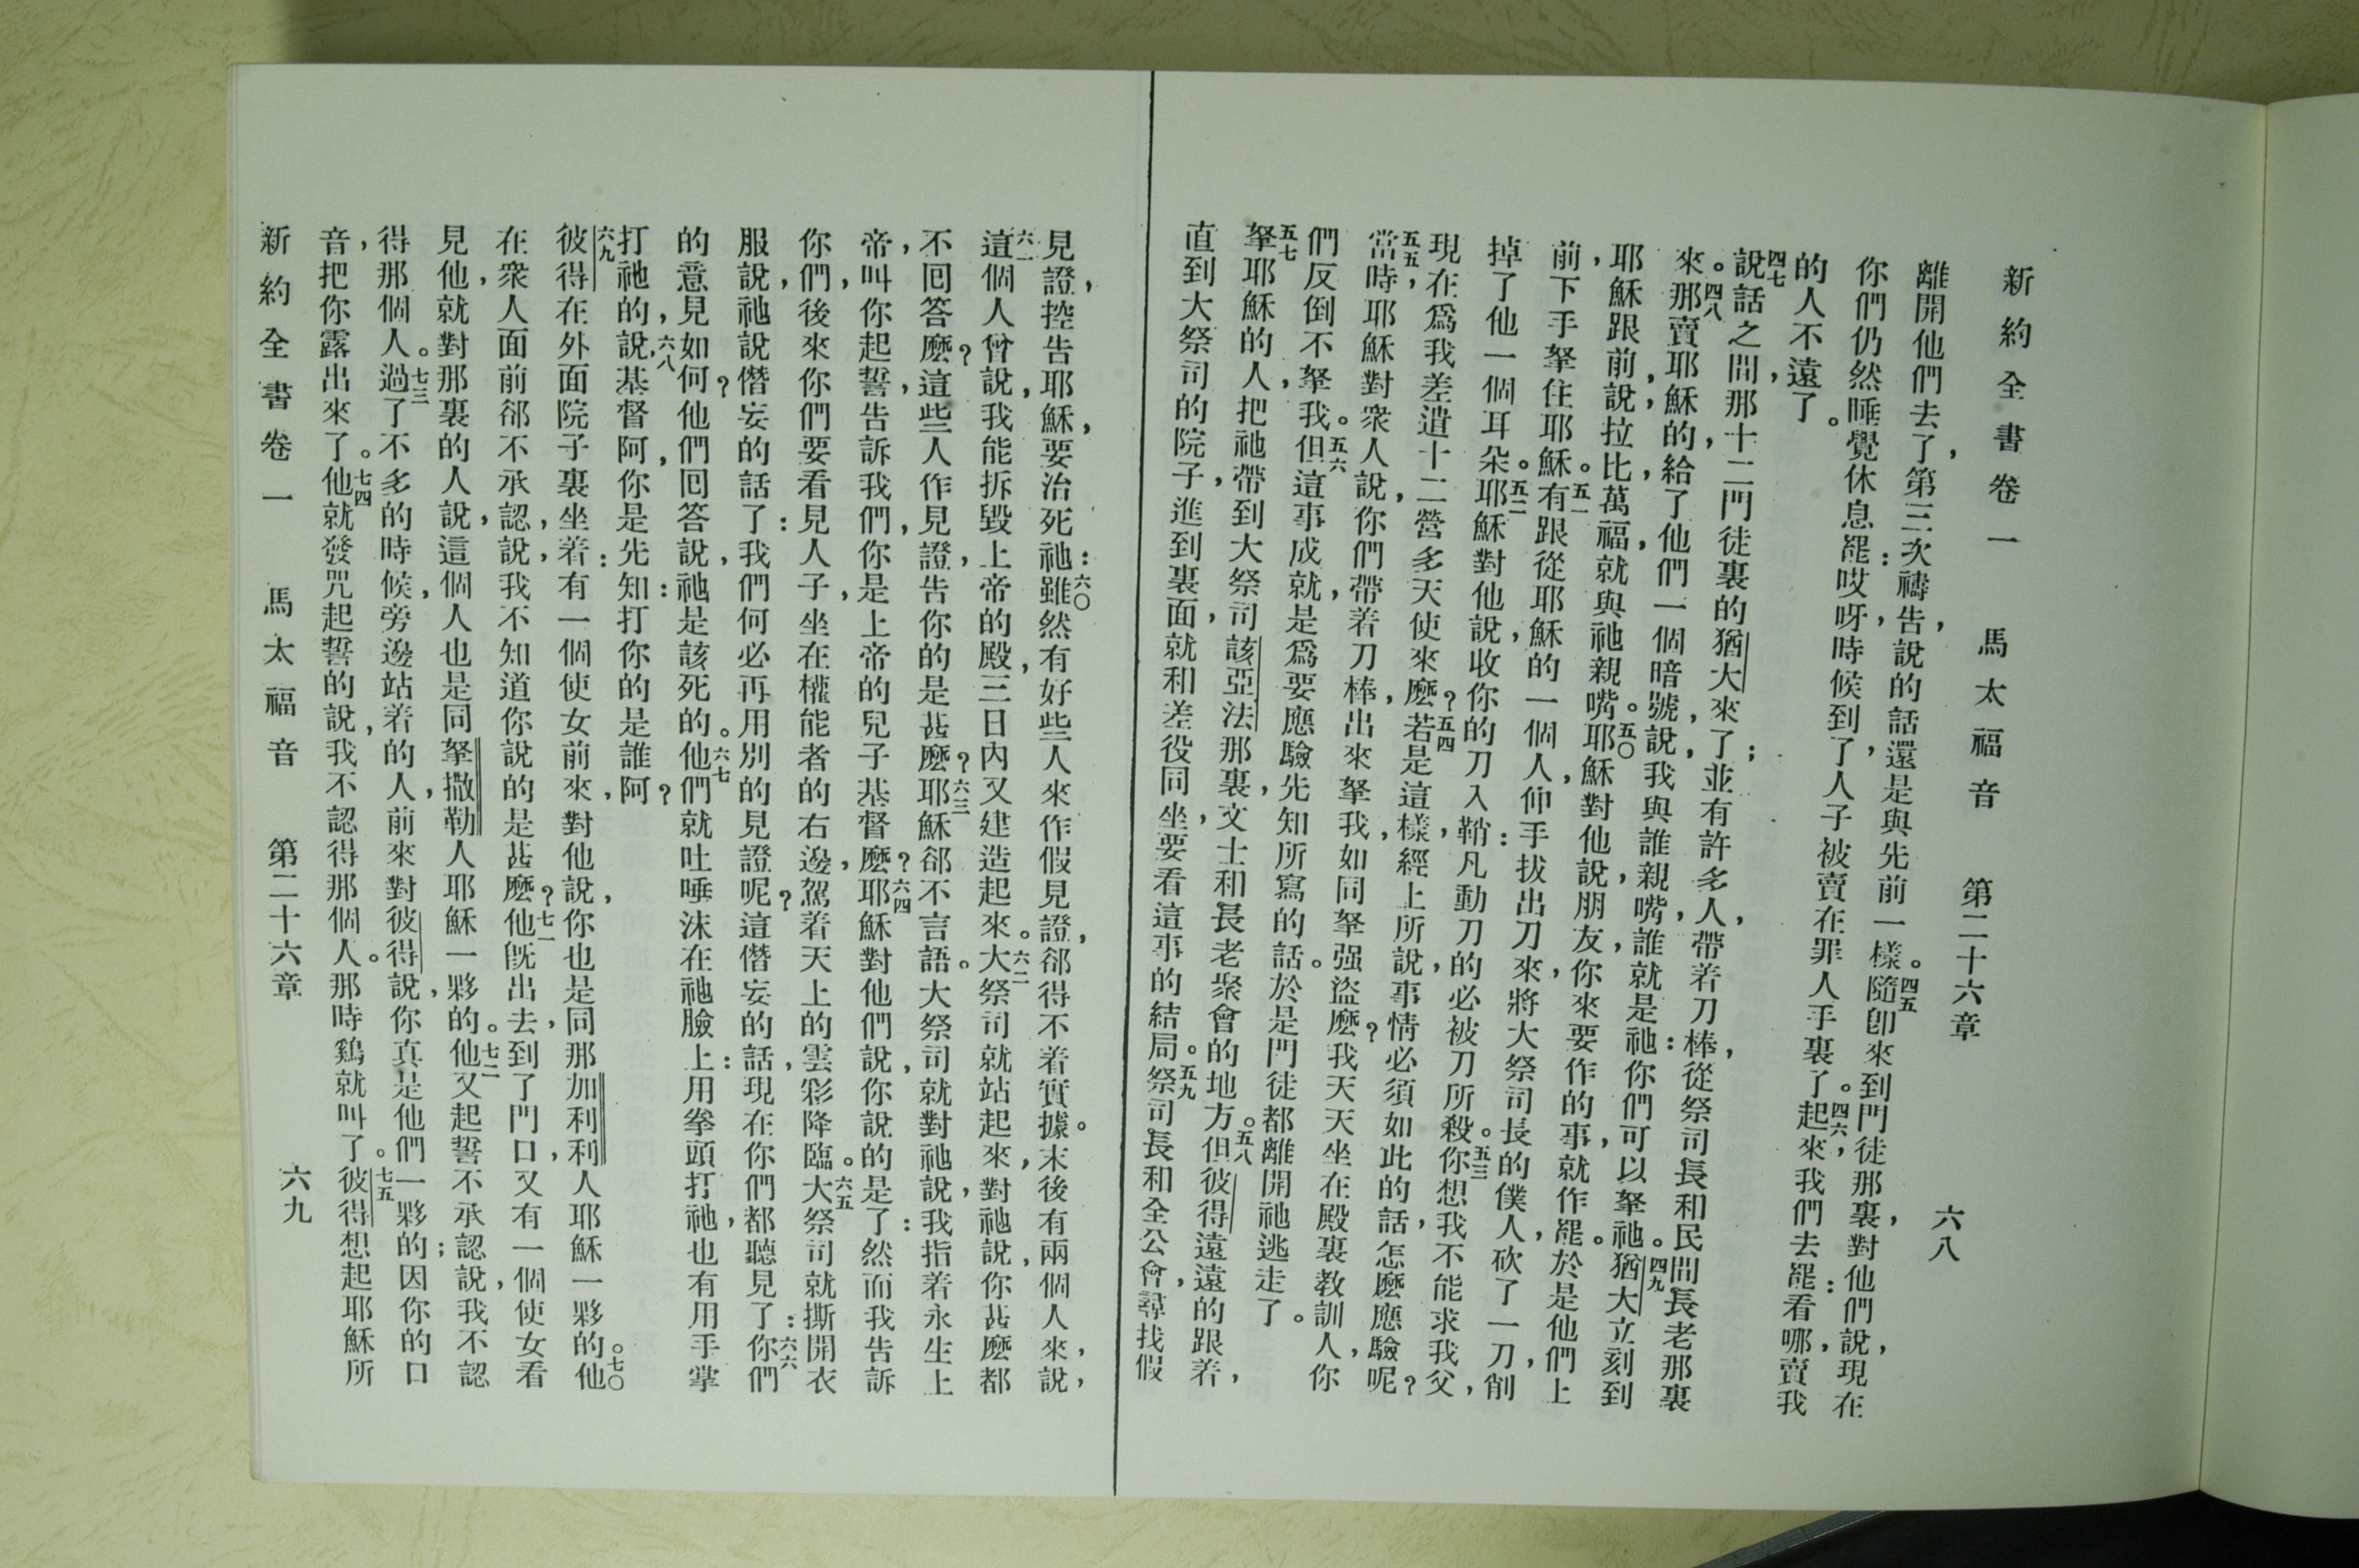 新約全書卷一　馬太福音　第二十六章　六八
離開他們去了，第三次禱告，說的話還是與先前一樣。四五隨卽來到門徒那裏，對他們說，現在
你們仍然睡覺休息罷：哎呀，時候到了，人子被賣在罪人手裏了。四六起來，我們去罷：看哪，賣我
的人不遠了。
四七說話之間，那十二門徒裏的猶大來了；並有許多人，帶着刀棒，從祭司長和民間長老那裏
來。四八那賣耶穌的，給了他們一個暗號，說，我與誰親嘴，誰就是祂：你們可以拏祂。四九猶大立刻到
耶穌跟前，說，拉比，萬福，就與祂親嘴。五〇耶穌對他說，朋友，你來要作的事，就作罷。於是他們上
前，下手拏住耶穌。五一有跟從耶穌的一個人，伸手拔出刀來，將大祭司長的僕人，砍了一刀，削
掉了他一個耳朵。五二耶穌對他說，收你的刀入鞘：凡動刀的，必被刀所殺。五三你想我不能求我父，
現在爲我差遣十二營多天使來麼？五四若是這樣，經上所說，事情必須如此的話，怎麼應驗呢？
五五當時，耶穌對衆人說，你們帶着刀棒，出來拏我，如同拏强盜麼？我天天坐在殿裏教訓人，你
們反倒不拏我。五六但這事成就，是爲要應驗先知所寫的話。於是門徒都離開祂逃走了。
五七拏耶穌的人，把祂帶到大祭司該亞法那裏，文士和長老聚會的地方。五八但彼得遠遠的跟着，
直到大祭司的院子，進到裏面，就和差役同坐，要看這事的結局。五九祭司長和全公會，尋找假
見證，控告耶穌，要治死祂：六〇雖然有好些人來作假見證，郤得不着實據。末後有兩個人來，說，
六一這個人曾說，我能拆毀上帝的殿，三日內又建造起來。六二大祭司就站起來，對祂說，你甚麼都
不回答麼？這些人作見證，告你的是甚麼？六三耶穌郤不言語。大祭司就對祂說，我指着永生上
帝，叫你起誓，告訴我們，你是上帝的兒子基督麼？六四耶穌對他們說，你說的是了：然而我告訴
你們，後來你們要看見人子，坐在權能者的右邊，駕着天上的雲彩降臨。六五大祭司就撕開衣
服，說，祂說僭妄的話了：我們何必再用別的見證呢？這僭妄的話，現在你們都聽見了：六六你們
的意見如何？他們回答說，祂是該死的。六七他們就吐唾沫在祂臉上：用拳頭打祂，也有用手掌
打祂的，說，六八基督阿，你是先知：打你的是誰阿？
六九彼得在外面院子裏坐着：有一個使女前來，對他說，你也是同那加利利人耶穌一夥的。七〇他
在衆人面前郤不承認，說，我不知道你說的是甚麼？七一他既出去，到了門口，又有一個使女看
見他，就對那裏的人說，這個人也是同拏撒勒人耶穌一夥的。七二他又起誓不承認，說，我不認
得那個人。七三過了不多的時候，旁邊站着的人，前來對彼得說，你真是他們一夥的；因你的口
音，把你露出來了。七四他就發咒起誓的說，我不認得那個人。那時鷄就叫了。七五彼得想起耶穌所
新約全書卷一　馬太福音　第二十六章　六九